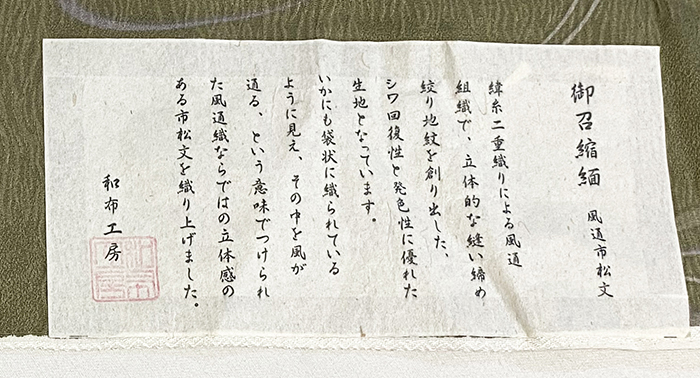 御召縮緬　風通市松文
緯糸二重織りによる風通
組織で、立体的な縫い締め
絞り地紋を創り出した、
シワ回復性と発色性に優れた
生地となっています。
いかにも袋状に織られている
ように見え、その中を風が
通る、という意味でつけられ
た風通織ならではの立体感の
ある市松文を織り上げました。
和布工房